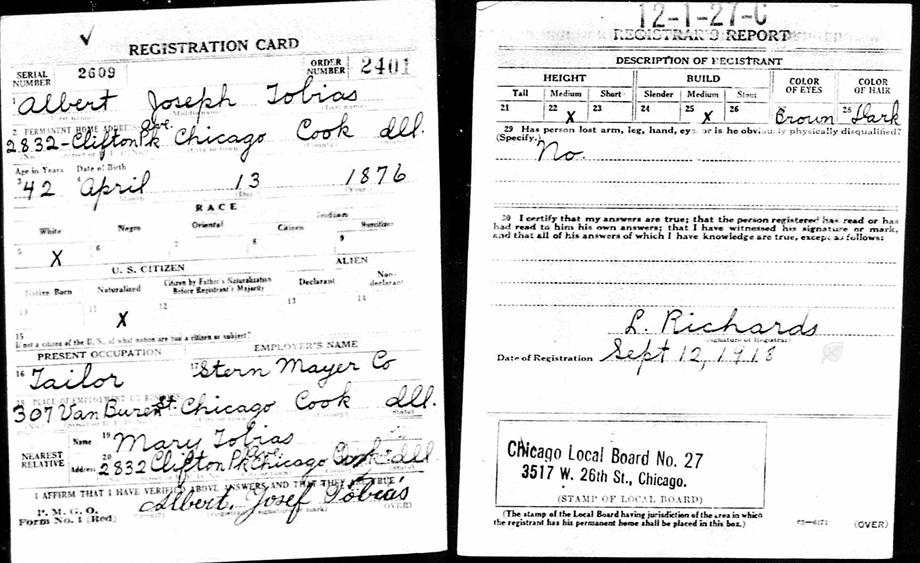 REGISTRATION CARD
SERIAL NUMBER 2609 ORDER NUMBER 2401
1 Albert Joseph Tobias
2 PERMANENT HOME ADDRESS
2832-Clifton Pk Ave. Chicago Cook Ill.
Age in Years Date of Birth
3 42 4 April 13 1876
RACE
White Negro Oriental Indian
Citizen Noncitizen
5 X 6 7 8 9
U. S. CITIZEN ALIEN
Native Born Naturalized Citizen by Father's Naturalization Before Registrant's Majority Declarant Non-declarant
10 11 X 12 13 14
15
If not a citizen of the U. S., of what nation are you a citizen or subject?
PRESENT OCCUPATION EMPLOYER'S NAME
16 Tailor 17 Stern Mayer Co
18 PLACE OF EMPLOYMENT OR BUSINESS
307 Van Buren St. Chicago Cook Ill.
NEAREST RELATIVE Name 19 Mary Tobias
Address 20 2832 Clifton Pk Ave. Chicago Cook Ill
I AFFIRM THAT I HAVE VERIFIED ABOVE ANSWERS AND THAT THEY ARE TRUE
P. M. G. O.
Form No. 1 (Red) Albert, Josef Tobias
(OVER)
12-1-27-C
REGISTRAR'S REPORT
DESCRIPTION OF REGISTRANT
HEIGHT BUILD COLOR OF EYES COLOR OF HAIR
Tall Medium Short Slender Medium Stout
21 22 X 23 24 25 X 26 27 Brown 28 Dark
29 Has person lost arm, leg, hand, eye, or is he obviously physically disqualified?
(Specify.) No.
30 I certify that my answers are true; that the person registered has read or has
had read to him his own answers; that I have witnessed his signature or mark,
and that all of his answers of which I have knowledge are true, except as follows:
L. Richards
(Signature of Registrar)
Date of Registration Sept 12, 1918
Chicago Local Board No. 27
3517 W. 26th St., Chicago.
(STAMP OF LOCAL BOARD)
(The stamp of the Local Board having jurisdiction of the area in which
the registrant has his permanent home shall be placed in this box.)
03—6171 (OVER)